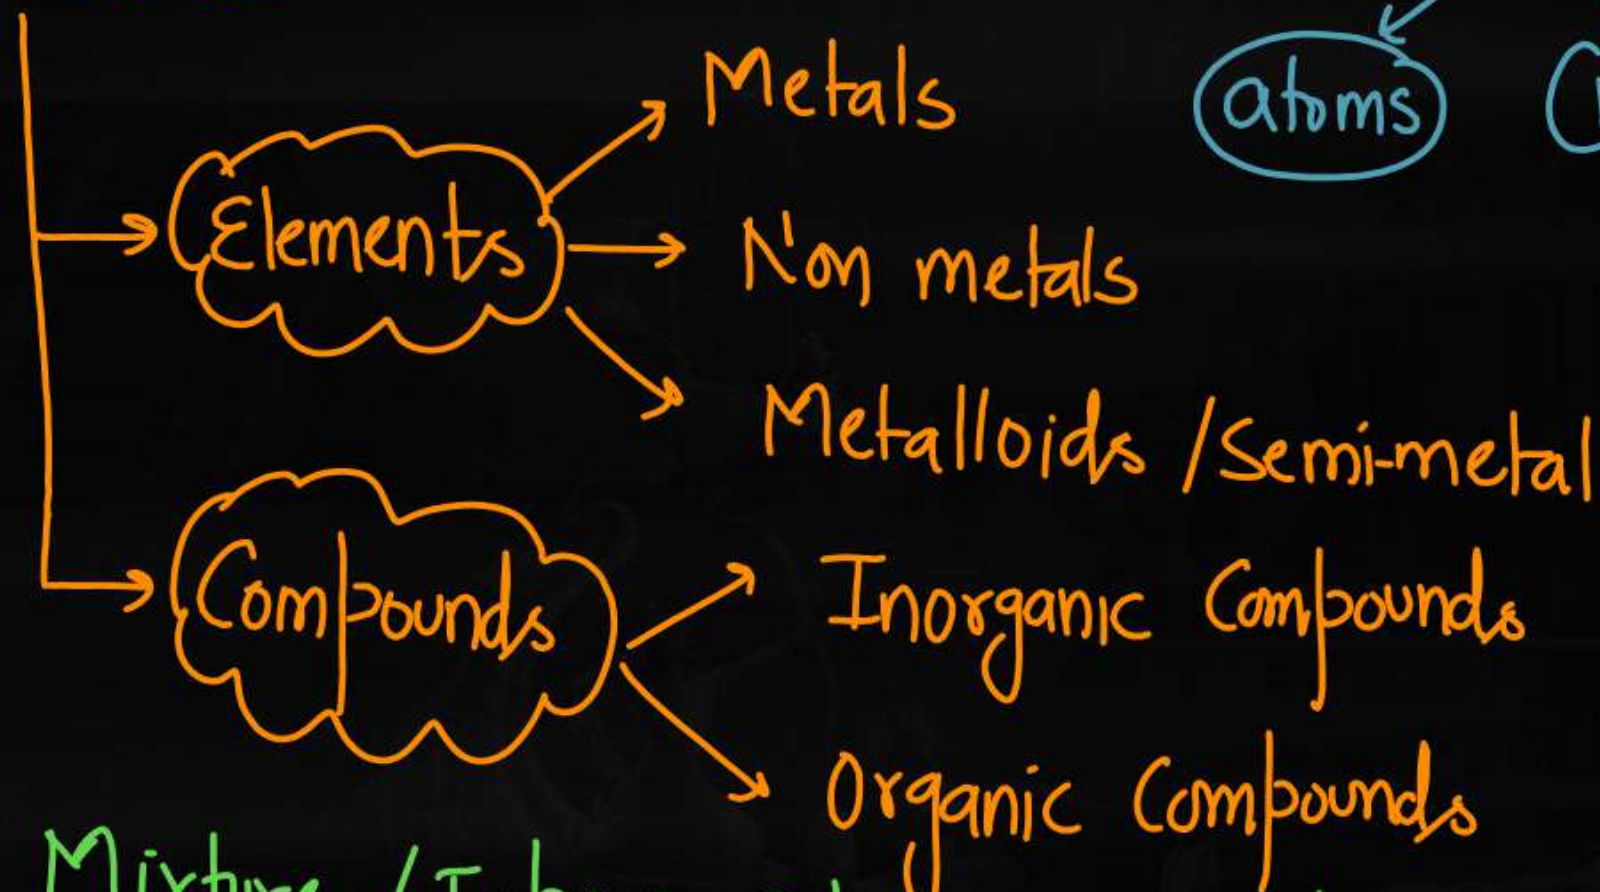 Metals
atoms
Elements
Non metals
Metalloids / Semi-metal
Compounds
Inorganic Compounds
Organic Compounds
Mixture /